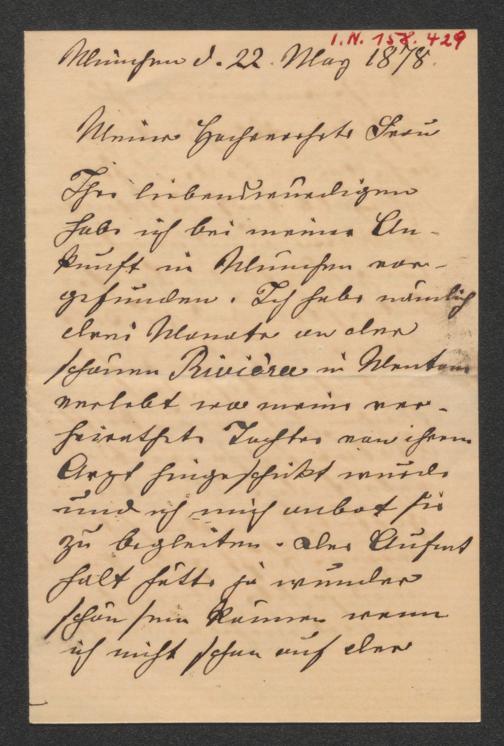 I.N. 158.429
München d. 22. May 1878.
Meine Hochverehrte Frau
Ihre liebenswürdigen
habe ich bei meiner An-
kunft in München vor-
gefunden. Ich habe nämlich
drei Monate an der
schönen Rivièra in Mentone
verlebt wo meine ver-
heirathete Tochter von ihrem
Arzt hingeschikt wurde
und ich mich anbot sie
zu begleiten. Der Aufent
halt hätte ja wunder
schön sein können wenn
ich nicht schon auf der